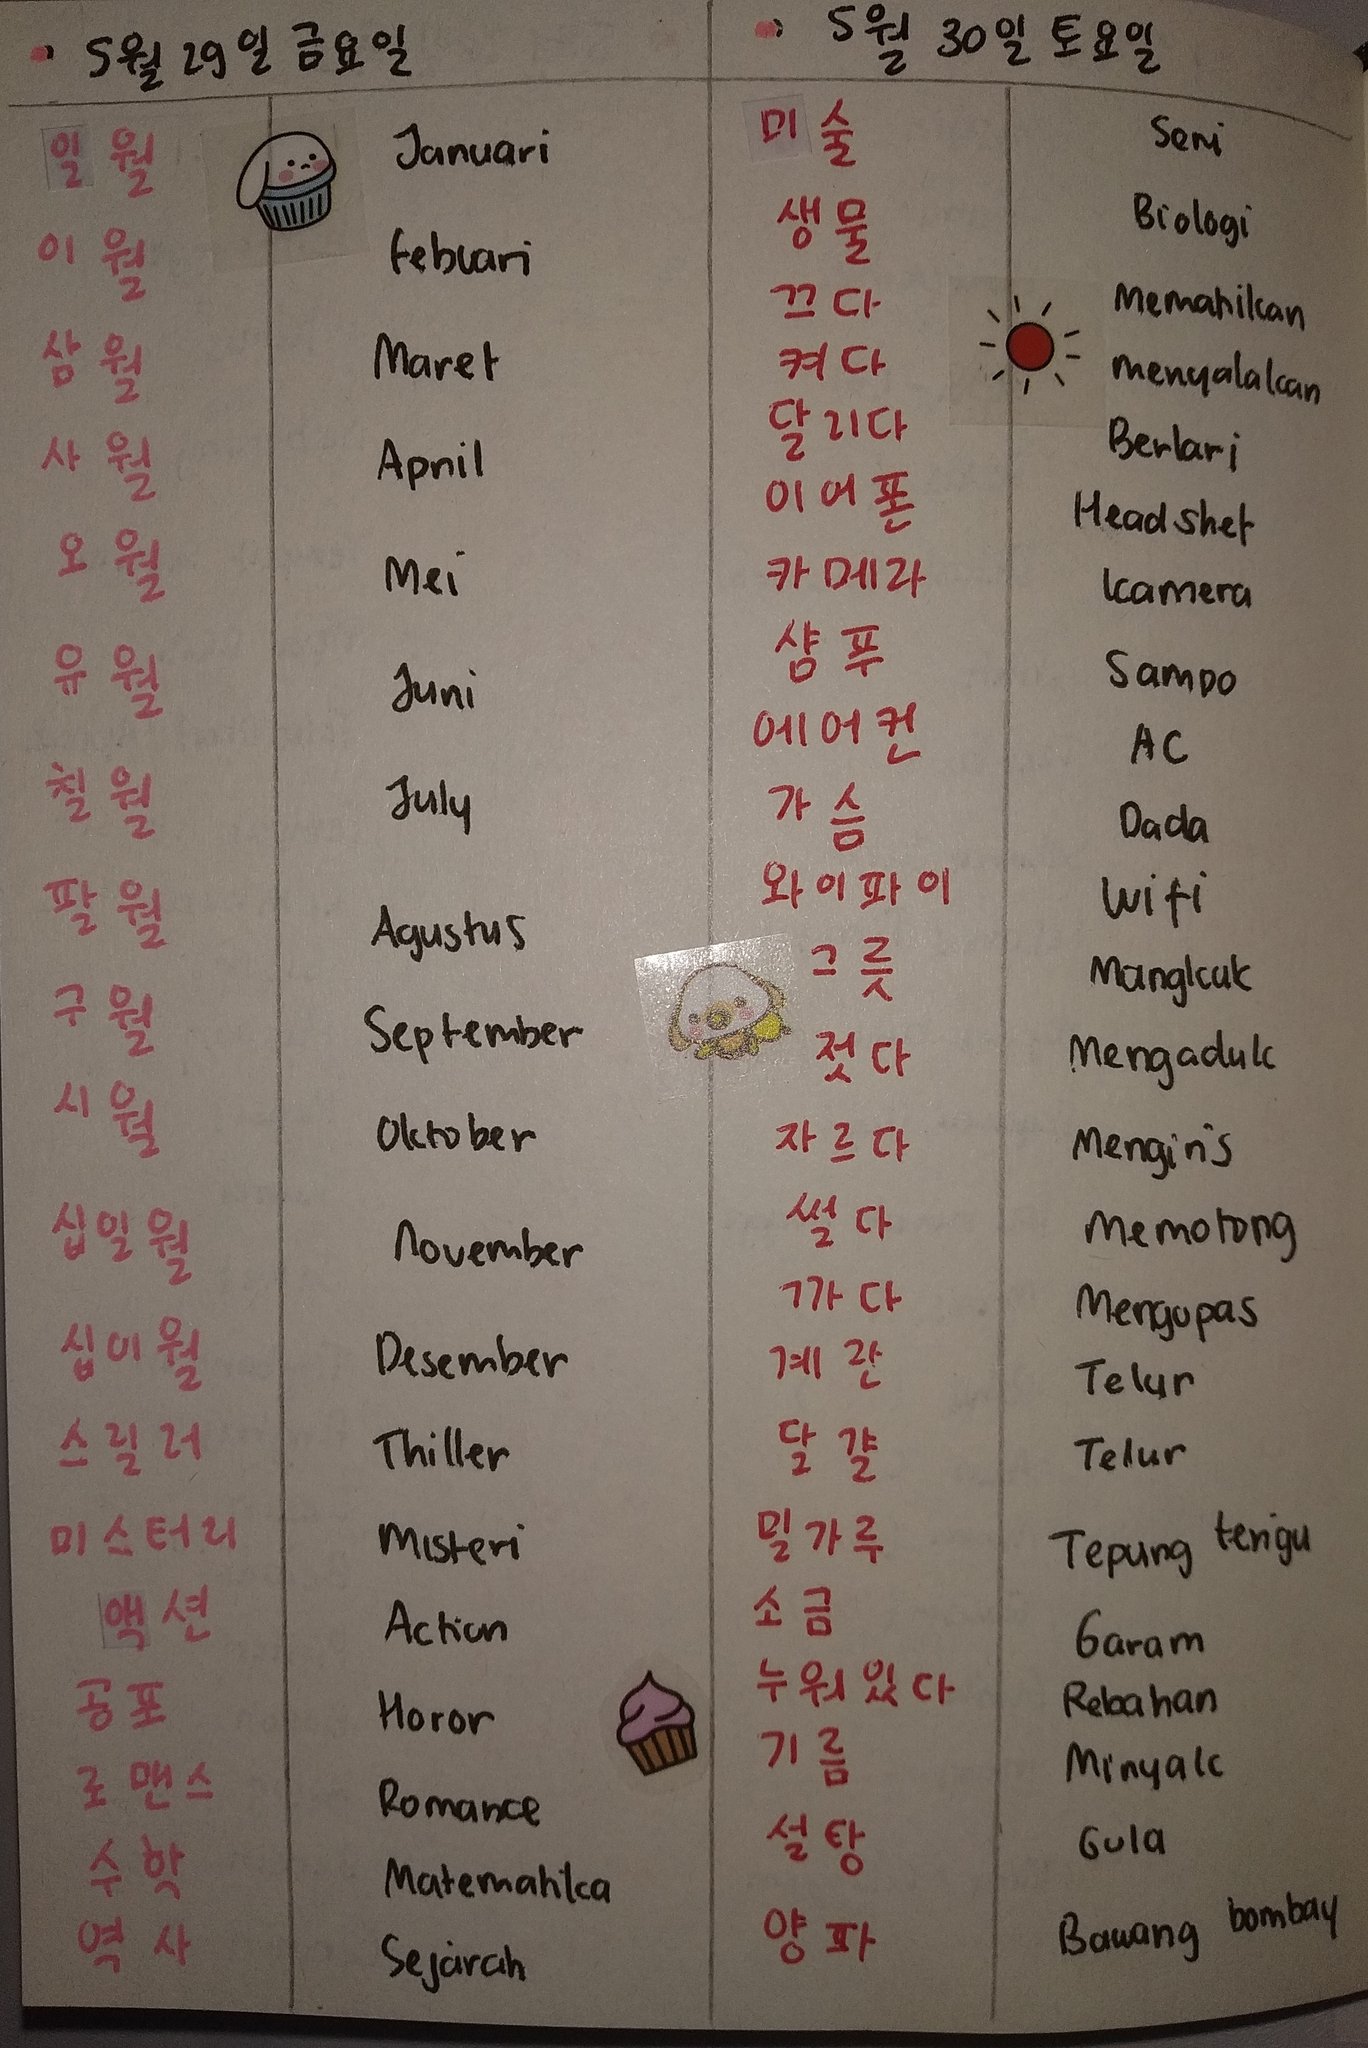 5월 29일 금요일
일월 Januari
이월 febuari
삼월 Maret
사월 April
오월 Mei
유월 Juni
칠월 July
팔월 Agustus
구월 September
시월 Oktober
십일월 November
십이월 Desember
스릴러 Thiller
미스터리 Misteri
액션 Action
공포 Horor
로맨스 Romance
수학 Matematika
역사 Sejarah
5월 30일 토요일
미술 Seni
생물 Biologi
끄다 Mematikan
켜다 menyalakan
달리다 Berlari
이어폰 Headshet
카메라 kamera
샴푸 Sampo
에어컨 AC
가슴 Dada
와이파이 Wifi
그릇 Mangkuk
젓다 Mengaduk
자르다 Mengiris
썰다 Memotong
까다 Mengupas
계란 Telur
달걀 Telur
밀가루 Tepung terigu
소금 Garam
누워있다 Rebahan
기름 Minyak
설탕 Gula
양파 Bawang bombay